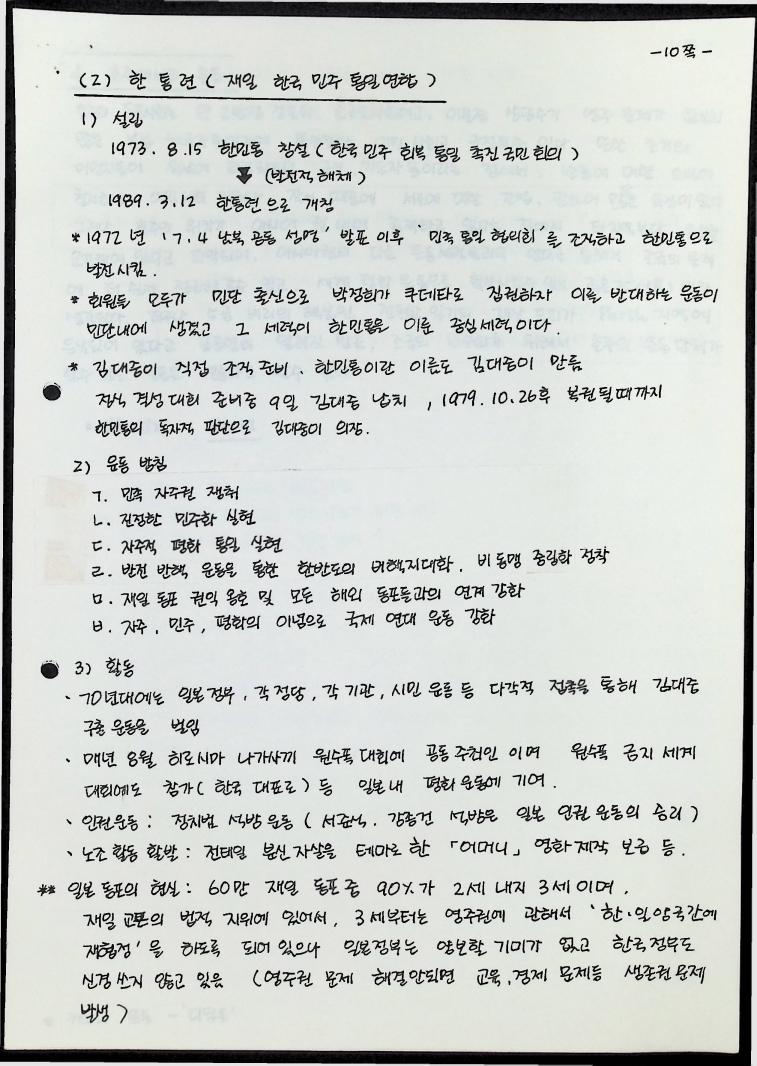 -10쪽-
(2) 한통련 ( 재일 한국 민주 통일 연합 )
1) 설립
1973. 8.15 한민통 창설 ( 한국 민주 회복 통일 촉진 국민 회의 )
(발전적 해체)
1989. 3.12 한통련으로 개칭
* 1972년 '7.4 남북 공동 성명' 발표 이후 '민족 통일 협의회'를 조직하고 한민통으로
발전시킴.
* 회원들 모두가 민단 출신으로 박정희가 쿠데타로 집권하자 이를 반대하는 운동이
민단내에 생겼고 그 세력이 한민통을 이룬 중심세력이다.
* 김대중이 직접 조직 준비. 한민통이란 이름도 김대중이 만듬
정식 결성대회 준비중 9일 김대중 납치, 1979.10.26후 복권될때까지
한민통의 독자적 판단으로 김대중이 의장.
2) 운동 방침
ㄱ. 민족 자주권 쟁취
ㄴ. 진정한 민주화 실현
ㄷ. 자주적 평화 통일 실현
ㄹ. 반전 반핵 운동을 통한 한반도의 비핵지대화. 비동맹 중립화 정착
ㅁ. 재일 동포 권익 옹호 및 모든 해외 동포들과의 연계 강화
ㅂ. 자주, 민주, 평화의 이념으로 국제 연대 운동 강화
3) 활동
· 70년대에는 일본정부, 각 정당, 각 기관, 시민 운동 등 다각적 접촉을 통해 김대중
구출 운동을 벌임
· 매년 8월 히로시마 나가사끼 원수폭 대회에 공동 주최인 이며 원수폭 금지 세계
대회에도 참가( 한국 대표로 ) 등 일본내 평화 운동에 기여.
· 인권운동 : 정치범 석방 운동 ( 서준식. 강종건 석방은 일본 인권 운동의 승리 )
· 노조 활동 활발 : 전태일 분신 자살을 테마로 한 「어머니」 영화제작 보급 등.
** 일본 동포의 현실 : 60만 재일 동포 중 90%가 2세 내지 3세 이며,
재일 교포의 법적 지위에 있어서, 3세부터는 영주권에 관해서 '한·일 양국간에
재협정'을 하도록 되어 있으나 일본정부는 양보할 기미가 없고 한국 정부도
신경 쓰지 않고 있음 (영주권 문제 해결안되면 교육, 경제 문제등 생존권 문제
발생)